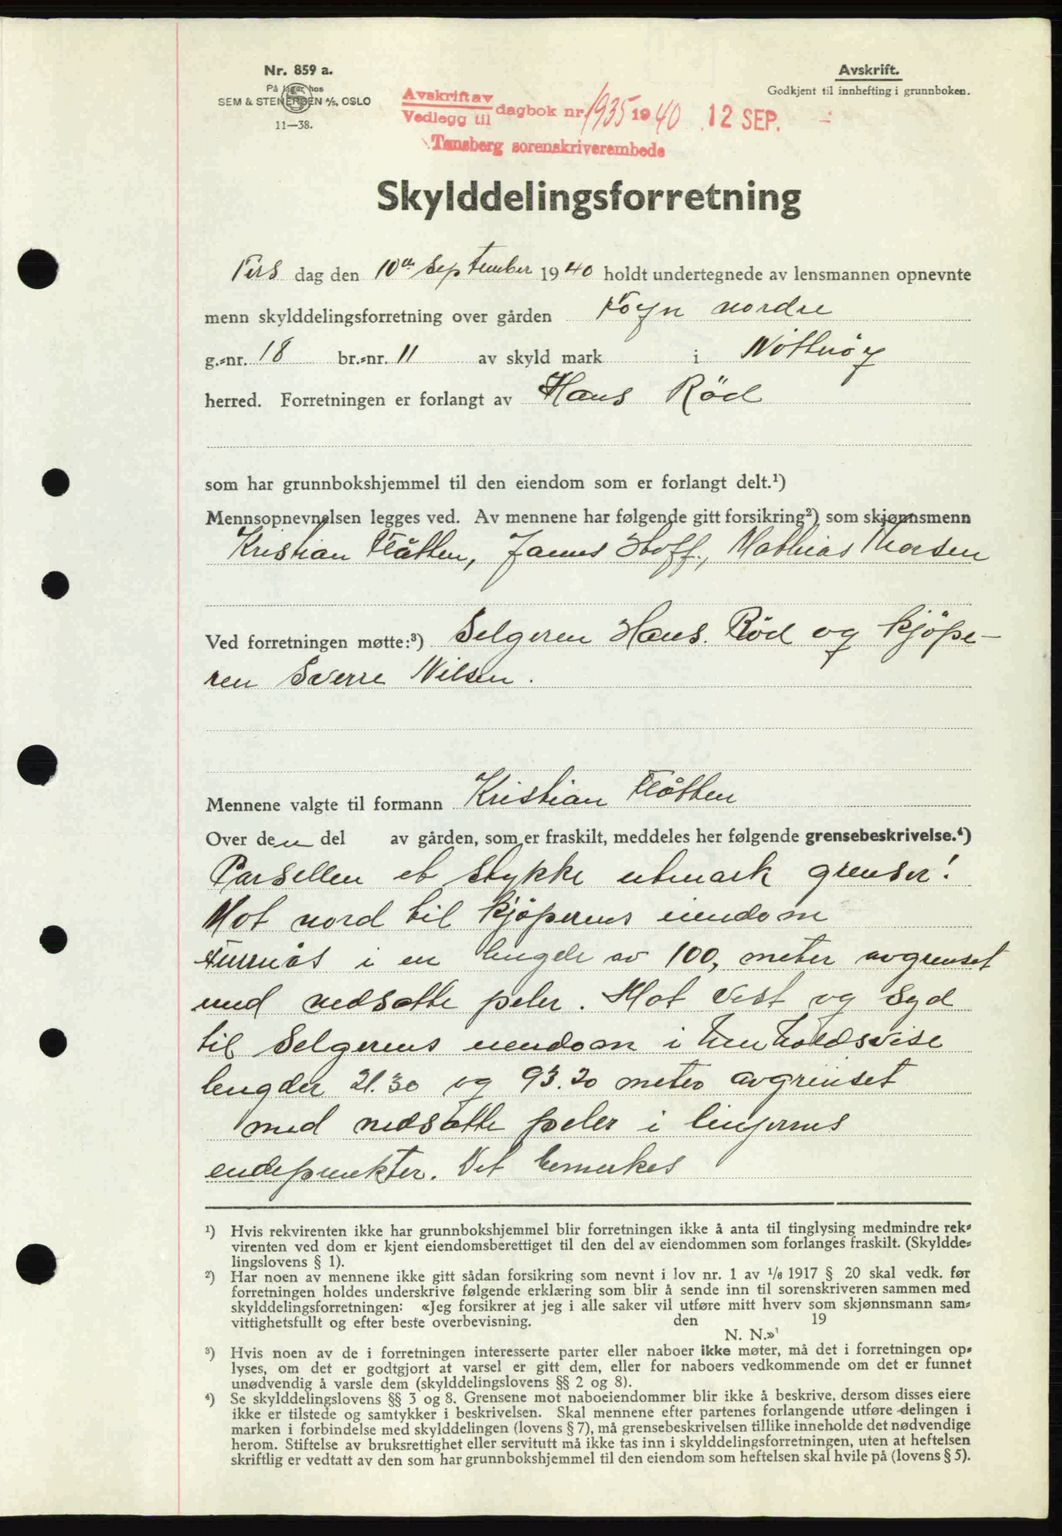 Nr. 859 a.
På lager hos
SEM & STENERSEN A/S, OSLO
11—38.
Avskrift.
Godkjent til innhefting i grunnboken.
Avskrift av
Vedlegg til dagbok nr. 1935 1940 12 SEP.
Tønsberg sorenskriverembede
Skylddelingsforretning
Tirs dag den 10de September 1940 holdt undertegnede av lensmannen opnevnte
menn skylddelingsforretning over gården Føyn nordre
g.-nr. 18 br.-nr. 11 av skyld mark i Nøtterøy
herred. Forretningen er forlangt av Hans Rød
som har grunnbokshjemmel til den eiendom som er forlangt delt.¹)
Mennsopnevnelsen legges ved. Av mennene har følgende gitt forsikring²) som skjønnsmenn
Kristian Flåtten, Hoff, Mathias
Ved forretningen møtte:³) Selgeren Hans Rød og kjøpe-
ren Sverre Nilsen.
Mennene valgte til formann Kristian Flåtten
Over den del av gården, som er fraskilt, meddeles her følgende grensebeskrivelse.⁴)
Parsellen et stykke utmark grenser:
Mot nord til kjøperens eiendom
Furnås i en lengde av 100, meter avgrenset
med nedsatte peler. Mot Vest og Syd
til Selgerens eiendom i henholdsvise
lengder 21.30 og 93.20 meter avgrenset
med nedsatte peler i linjernes
endepunkter. Det bemerkes
¹) Hvis rekvirenten ikke har grunnbokshjemmel blir forretningen ikke å anta til tinglysing medmindre rek-
virenten ved dom er kjent eiendomsberettiget til den del av eiendommen som forlanges fraskilt. (Skyldde-
lingslovens § 1).
²) Har noen av mennene ikke gitt sådan forsikring som nevnt i lov nr. 1 av 1/6 1917 § 20 skal vedk. før
forretningen holdes underskrive følgende erklæring som blir å sende inn til sorenskriveren sammen med
skylddelingsforretningen: «Jeg forsikrer at jeg i alle saker vil utføre mitt hverv som skjønnsmann sam-
vittighetsfullt og efter beste overbevisning. den 19
N. N.»
³) Hvis noen av de i forretningen interesserte parter eller naboer ikke møter, må det i forretningen op-
lyses, om det er godtgjort at varsel er gitt dem, eller for naboers vedkommende om det er funnet
unødvendig å varsle dem (skylddelingslovens §§ 2 og 8).
⁴) Se skylddelingslovens §§ 3 og 8. Grensene mot naboeiendommer blir ikke å beskrive, dersom disses eiere
ikke er tilstede og samtykker i beskrivelsen. Skal mennene efter partenes forlangende utføre delingen i
marken i forbindelse med skylddelingen (lovens § 7), må grensebeskrivelsen tillike inneholde det nødvendige
herom. Stiftelse av bruksrettighet eller servitutt må ikke tas inn i skylddelingsforretningen, uten at heftelsen
skriftlig er vedtatt av den som har grunnbokshjemmel til den eiendom som heftelsen skal hvile på (lovens § 5).